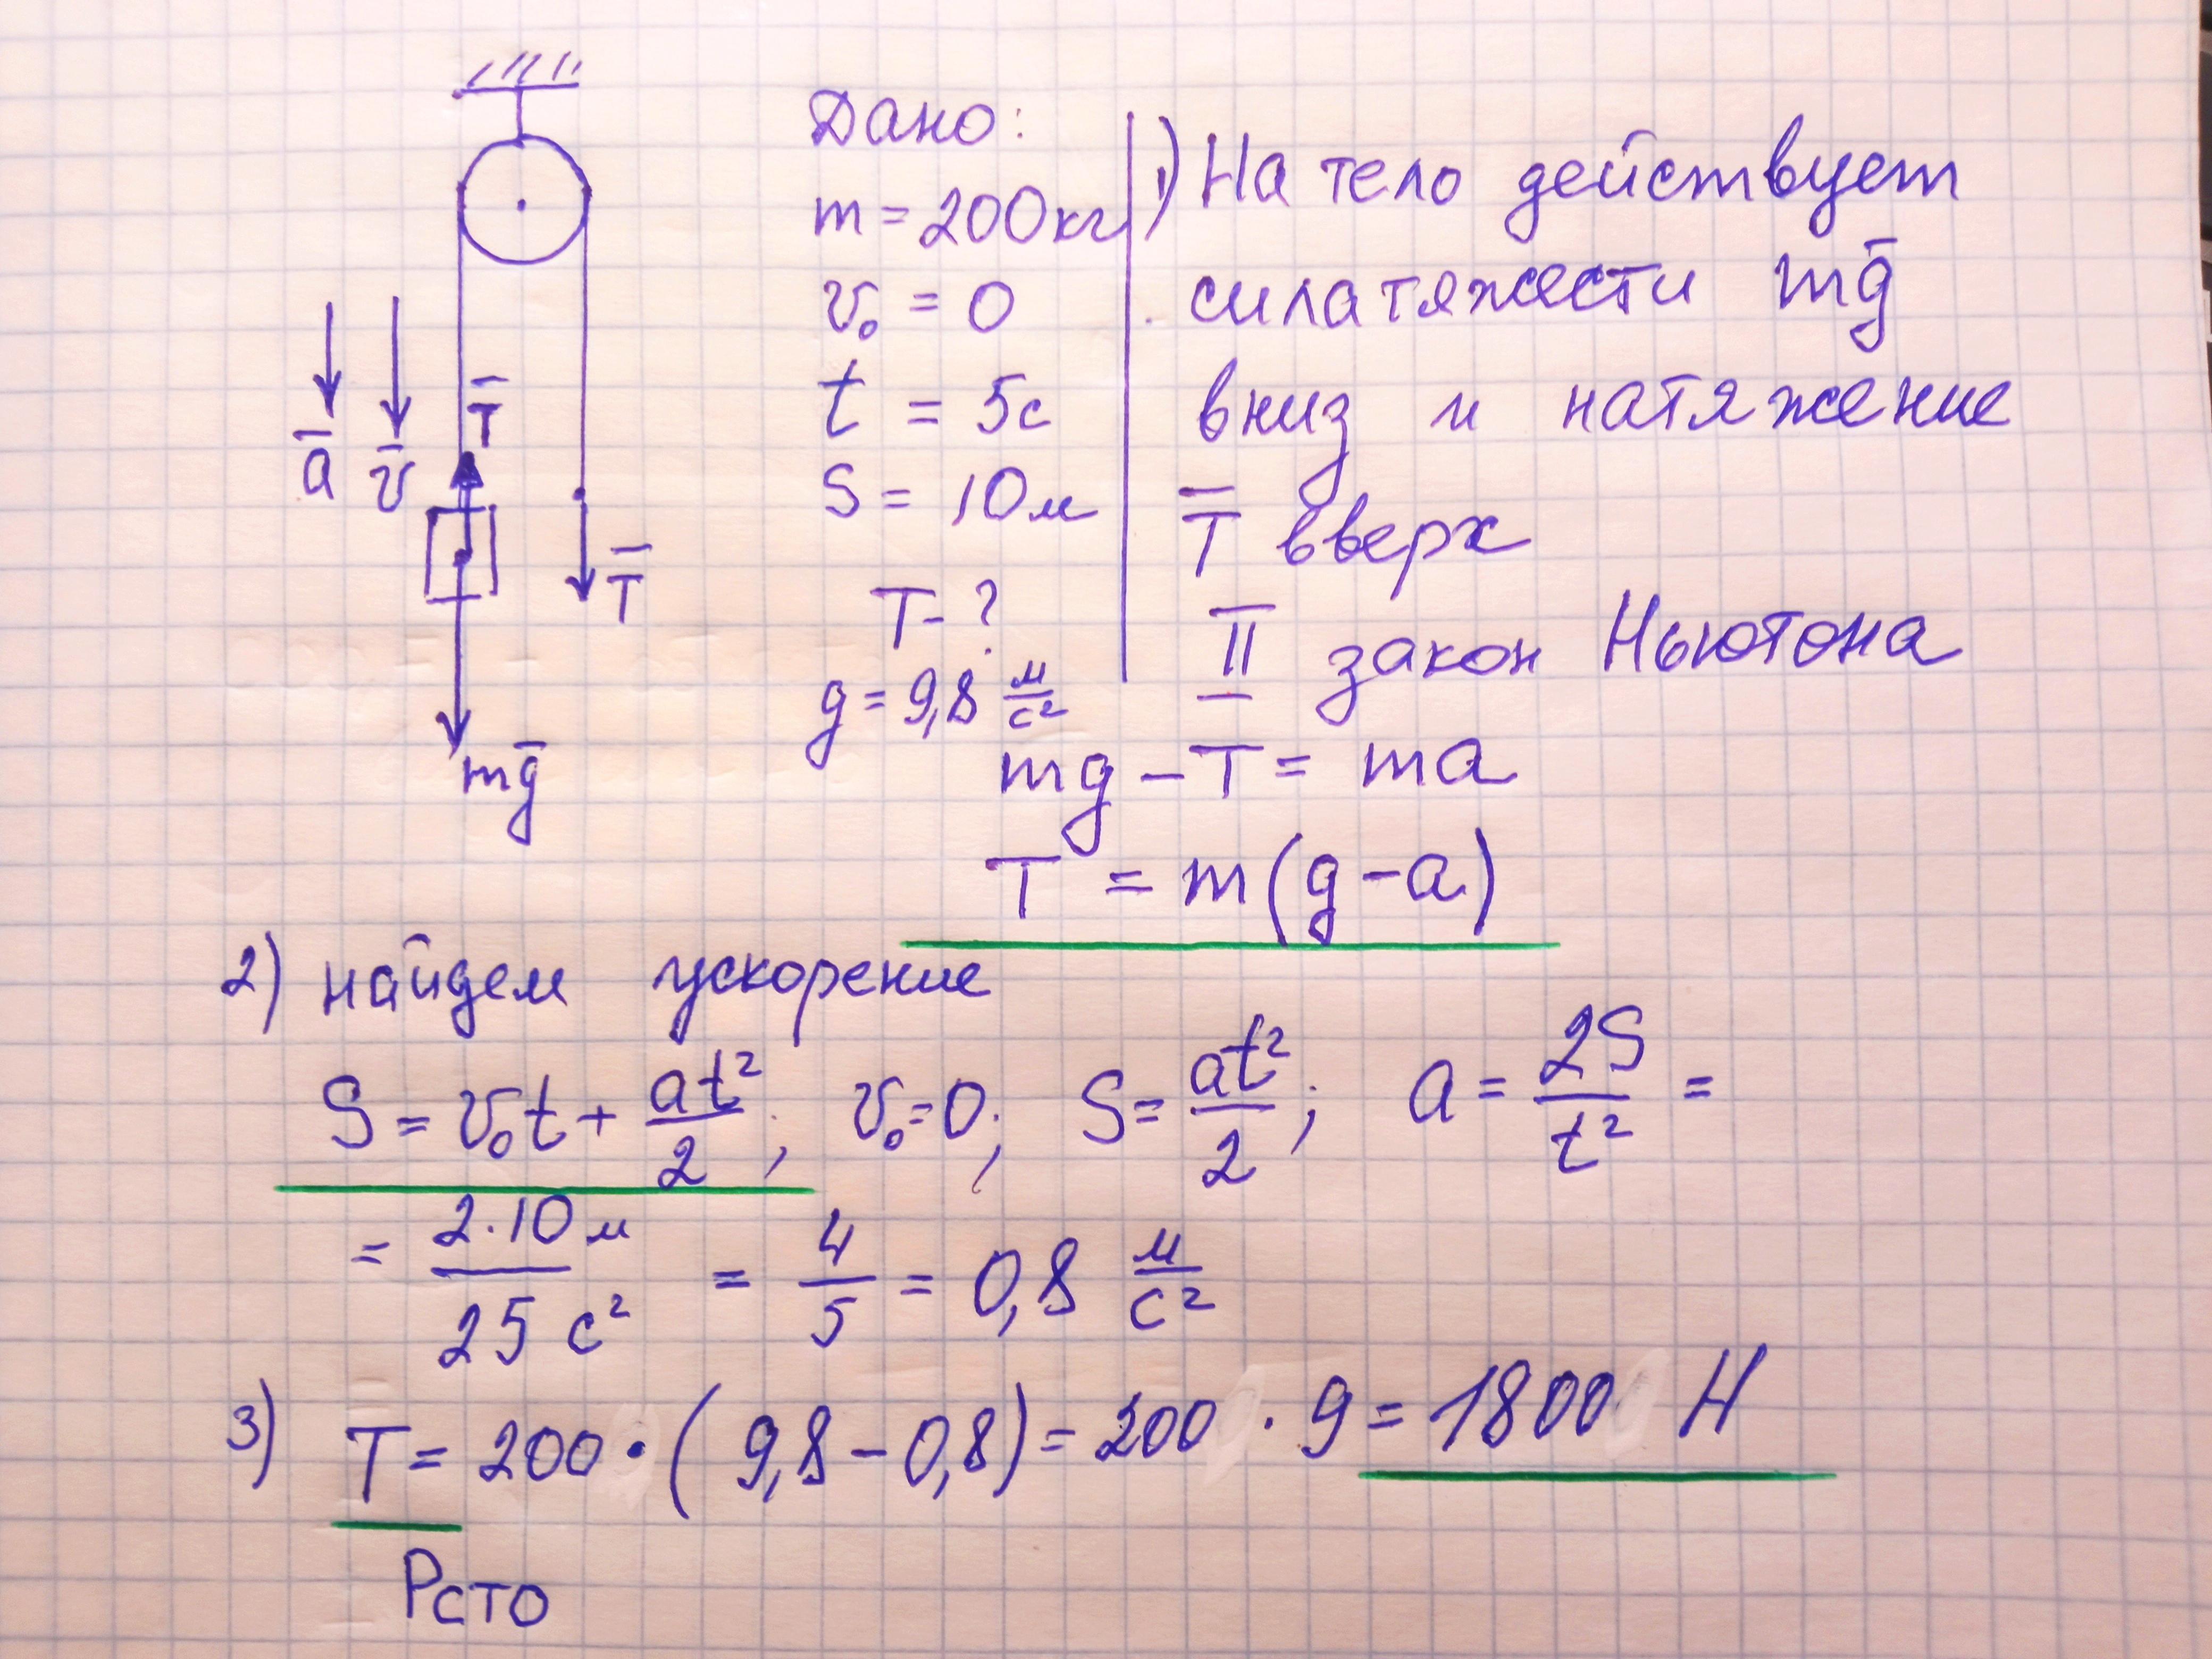 Дано:
m = 200кг
v₀ = 0
t = 5с
S = 10м
T - ?
g = 9,8 м/с²
a̅
v̅
T̅
T̅
mg̅
1) На тело действует
сила тяжести mg̅
вниз и натяжение
T̅ вверх
II закон Ньютона
mg - T = ma
T = m(g - a)
2) найдем ускорение
S = v₀t + at²/2; v₀ = 0; S = at²/2; a = 2S/t² =
= 2·10м/25 с² = 4/5 = 0,8 м/с²
3) T = 200 · (9,8 - 0,8) = 200 · 9 = 1800 Н
Рсто